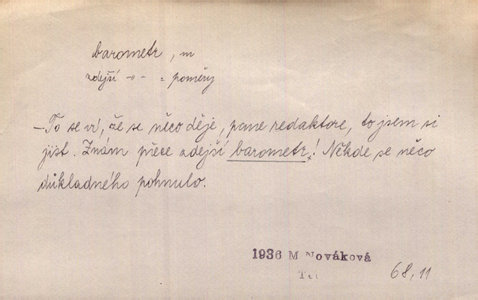 barometr, m
zdejší -"- = poměry
—To se ví, že se něco děje, pane redaktore, to jsem si
jist. Znám přece zdejší barometr! Někde se něco
důkladného pohnulo.
1936 M Nováková
68, 11